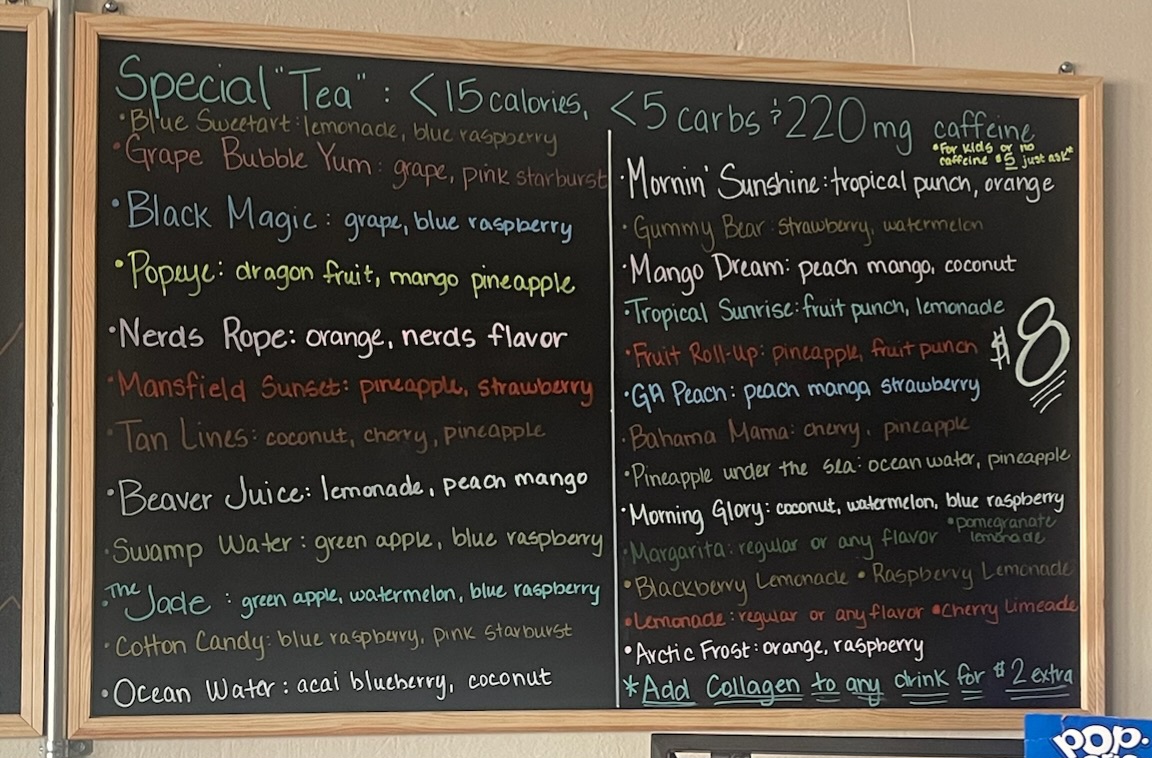 Special "Tea" : <15 calories, <5 carbs & 220 mg caffeine
*For kids or no
caffeine $5 just ask*
•Blue Sweetart: lemonade, blue raspberry
•Grape Bubble Yum: grape, pink starburst
•Black Magic: grape, blue raspberry
•Popeye: dragon fruit, mango pineapple
•Nerds Rope: orange, nerds flavor
•Mansfield Sunset: pineapple, strawberry
•Tan Lines: coconut, cherry, pineapple
•Beaver Juice: lemonade, peach mango
•Swamp Water: green apple, blue raspberry
•The Jade: green apple, watermelon, blue raspberry
•Cotton Candy: blue raspberry, pink starburst
•Ocean Water: acai blueberry, coconut
•Mornin' Sunshine: tropical punch, orange
•Gummy Bear: strawberry, watermelon
•Mango Dream: peach mango, coconut
•Tropical Sunrise: fruit punch, lemonade
•Fruit Roll-Up: pineapple, fruit punch
$8
•GA Peach: peach manga strawberry
•Bahama Mama: cherry, pineapple
•Pineapple under the sea: ocean water, pineapple
•Morning Glory: coconut, watermelon, blue raspberry
•Margarita: regular or any flavor •pomegranate
lemonade
•Blackberry Lemonade •Raspberry Lemonade
•Lemonade: regular or any flavor •Cherry Limeade
•Arctic Frost: orange, raspberry
*Add Collagen to any drink for $2 extra
POP.